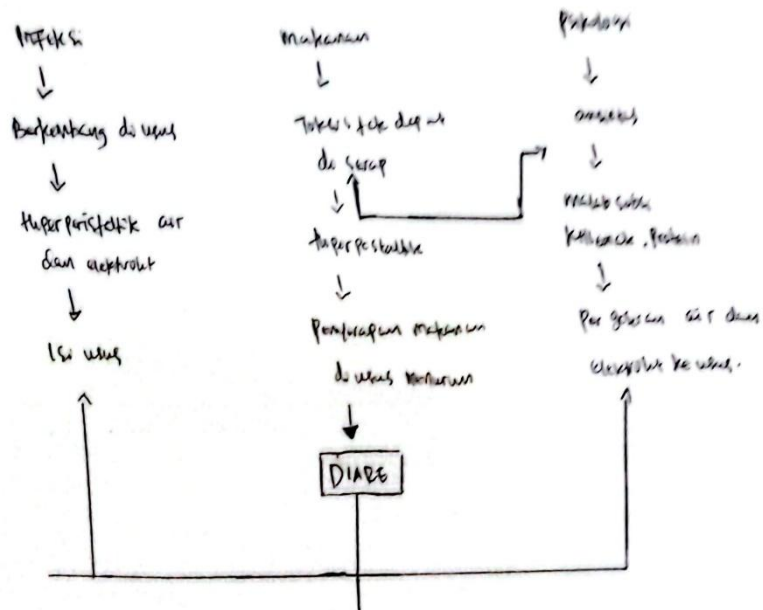 Infeksi
Berkembang di usus
Hiperperistaltik air
dan elektrolit
Isi usus
Makanan
Toksis tak dapat
di serap
Hiperperistaltik
Penyerapan makanan
di usus menurun
DIARE
Psikologi
ansietas
Malabsorbsi
, Protein
Pergeseran air dan
elektrolit ke usus.